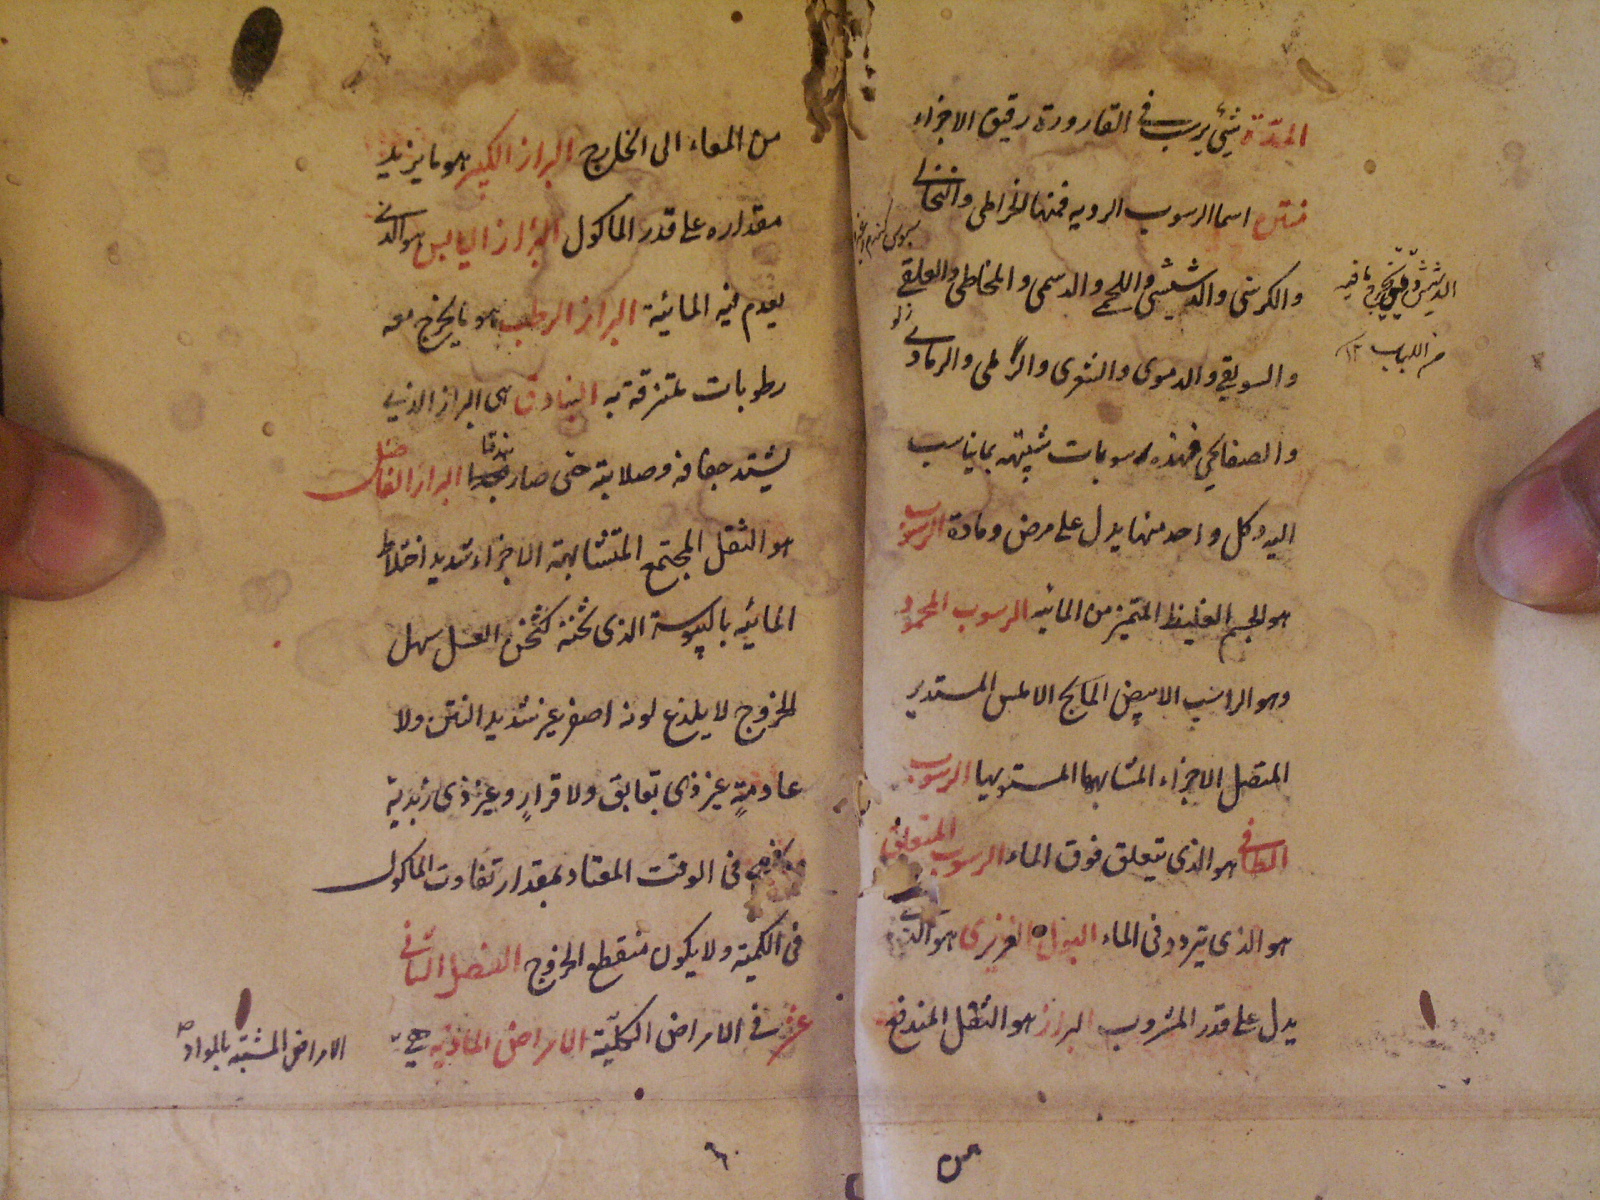 المدّة شئ يرسب في القارورة رقيق الاجزاء
منتن اسما الرسوب الرديه فمنها الخراطى والنخالى
والكرسنى والدشيشى واللحمى والدسمى والمخاطى والعلقى
والسويقى والدموى والشعرى والرملى والرمادى
والصفايحى فهذه رسوبات شبيهة بما يناسب
اليه وكل واحد منها يدل على مرض ومادة الرسوب
هو الجسم الغليظ المتميز من المائيه الرسوب المحمود
وهو الراسب الابيض المايح الاملس المستدير
المتصل الاجزاء المتشابهها المستويها الرسوب
الطافى هو الذى يتعلق فوق الماء الرسوب المتعلق
هو الذى يتردد فى الماء البول الغزيرى هو الذى
يدل على قدر المشروب البراز هو الثقل المندفع
من اللباب ١٢
من
من المعاء الى الخارج البراز الكثير هو ما يزيد
مقداره على قدر الماكول البراز اليابس هو الذى
يعدم فيه المائية البراز الرطب هو ما يخرج معه
رطوبات ملتزقة به البنادق هى البراز الذى
يشتد جفافه وصلابته حتى صار بندقا البراز الفاضل
هو الثقل المجتمع المتشابهة الاجزاء شديد اختلاط
المائيه باليبوسة الذى ثخنه كثخن العسل سهل
الخروج لا يلذع لونه اصفر غير شديد النتن ولا
عادمةٍ غير ذى بقابق ولا قراقرٍ وغير ذى زبدية
فى الوقت المعتاد بمقدار تفاوت الماكول
فى الكمية ولا يكون منقطع الخروج الفصل الثانى
عشر فى الامراض الكليّة الامراض المادّيّة هى
الامراض المشبثة بالمواد
٦٠